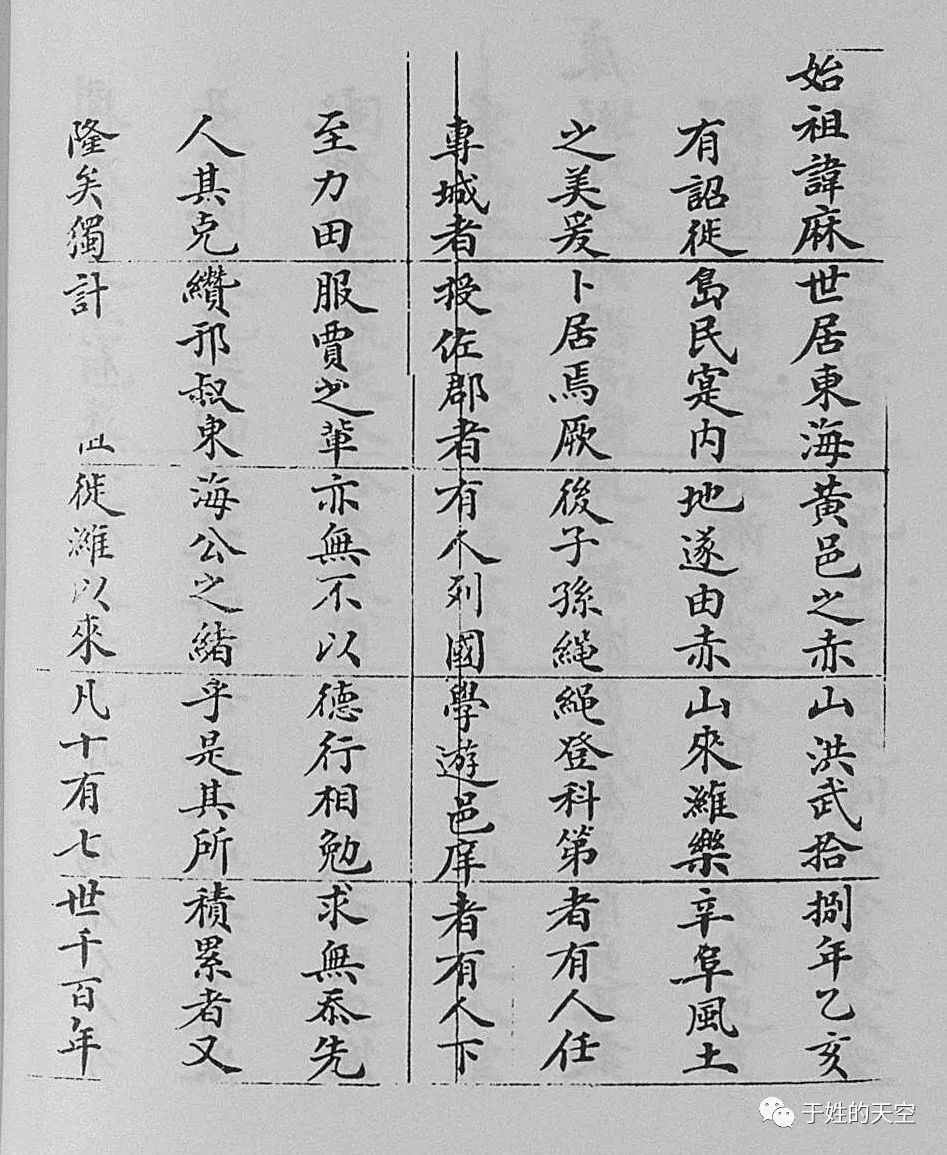 始祖諱麻世居東海黃邑之赤山洪武拾捌年乙亥
有詔徙島民寔內地遂由赤山來濰樂辛阜風土
之美爰卜居焉厥後子孫繩繩登科第者有人任
專城者授佐郡者有人列國學遊邑庠者有人下
至力田服賈之輩亦無不以德行相勉求無忝先
人其克纘邢叔東海公之緒乎是其所積累者又
隆矣獨計徙濰以來凡十有七世千百年
于姓的天空